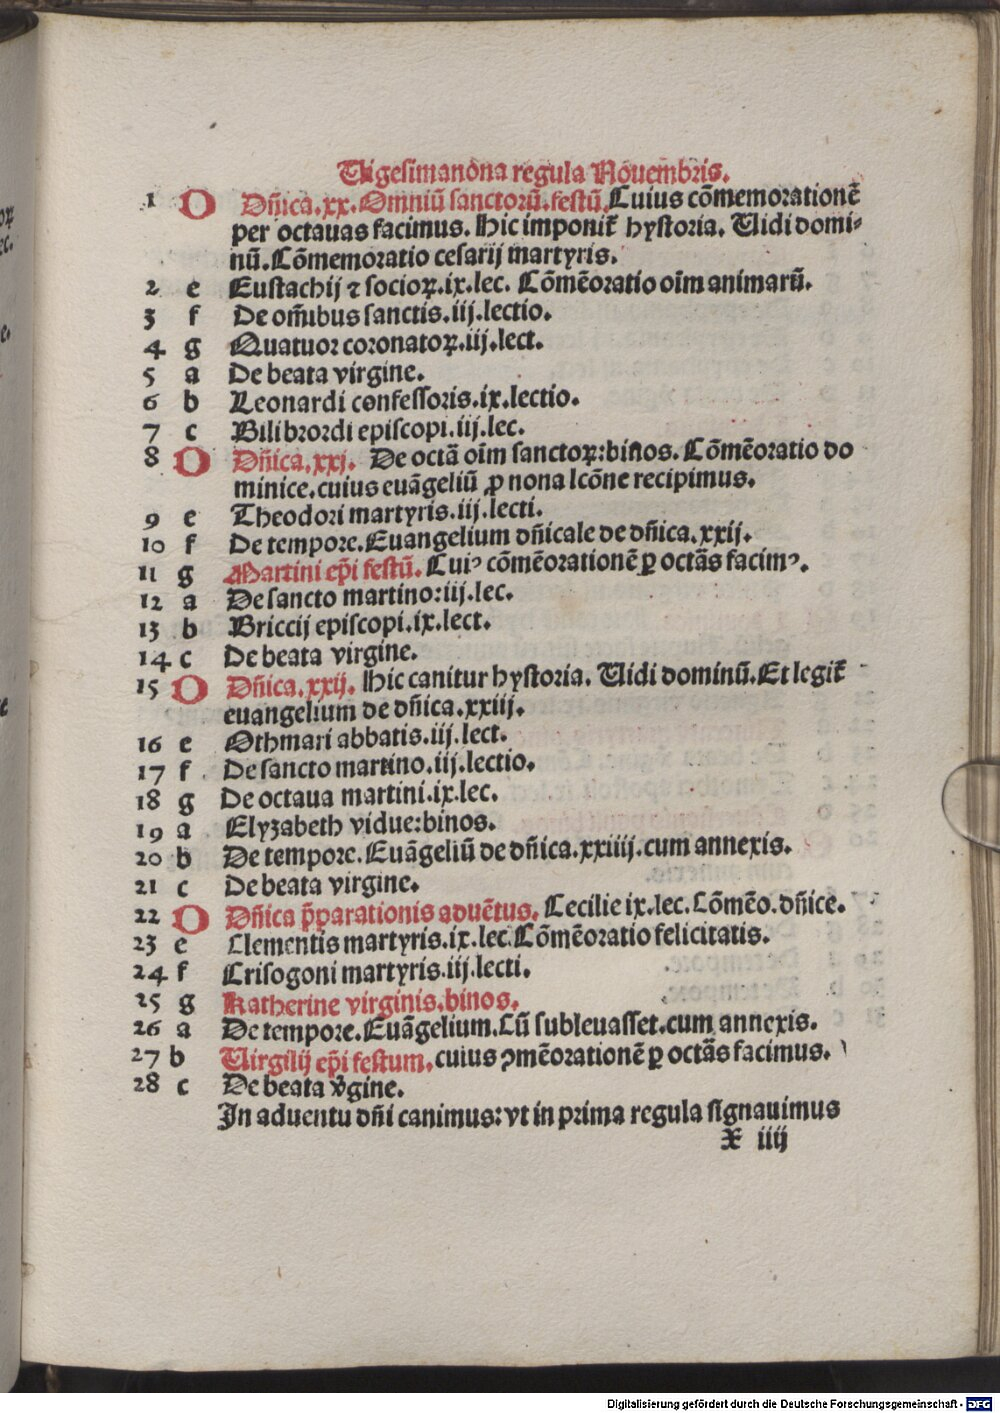 Uigesimanõna regula Nouem̃bris.
1 D Dñica.xx. Omniũ sanctorũ.festũ. Cuius cõmemorationẽ
per octauas facimus. Hic imponit̃ hystoria. Uidi domi⸗
nũ. Cõmemoratio cesarij martyris.
2 e Eustachij ⁊ socioꝝ.ix.lec. Cõmẽoratio oĩm animarũ.
3 f De om̃ibus sanctis.iij.lectio.
4 g Quatuor coronatoꝝ.iij.lect.
5 a De beata virgine.
6 b Leonardi confessoris.ix.lectio.
7 c Bilibrordi episcopi.iij.lec.
8 D Dñica.xxj. De octã oĩm sanctoꝝ:binos. Cõmẽoratio do
minice.cuius euãgeliũ ꝓ nona lcõne recipimus.
9 e Theodori martyris.iij.lecti.
10 f De tempore.Euangelium dñicale de dñica.xxij.
11 g Martini ep̃i festũ. Cuiꝰ cõmẽorationẽ ꝑ octãs facimꝰ.
12 a De sancto martino:iij.lec.
13 b Briccij episcopi.ix.lect.
14 c De beata virgine.
15 D Dñica.xxij. Hic canitur hystoria. Uidi dominũ.Et legit̃
euangelium de dñica.xxiij.
16 e Othmari abbatis.iij.lect.
17 f De sancto martino.iij.lectio.
18 g De octaua martini.ix.lec.
19 a Elyzabeth vidue:binos.
20 b De tempore.Euãgeliũ de dñica.xxiiij.cum annexis.
21 c De beata virgine.
22 D Dñica p̃parationis aduẽtus. Cecilie ix.lec. Cõmẽo.dñice.
23 e Clementis martyris.ix.lec. Cõmẽoratio felicitatis.
24 f Crisogoni martyris.iij.lecti.
25 g Katherine virginis.binos.
26 a De tempore.Euãgelium.Cũ subleuasset.cum annexis.
27 b Uirgilij ep̃i festum. cuius ꝯmẽorationẽ ꝑ octãs facimus.
28 c De beata v̔gine.
In aduentu dñi canimus:vt in prima regula signauimus
X iiij
oꝝ
ec.
e.
e
Digitalisierung gefördert durch die Deutsche Forschungsgemeinschaft - DFG